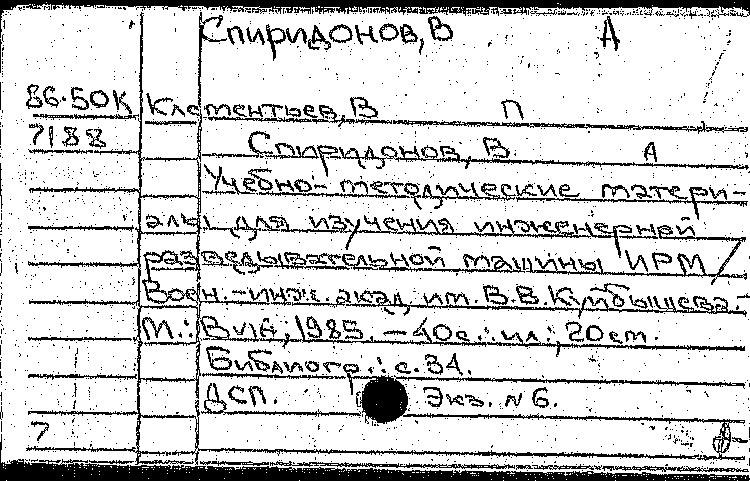 Спиридонов, В А
86-50К Клементьев, В П
7188 Спиридонов, В. А
Учебно-методические матери-
алы для изучения инженерной
разведывательной машины ИРМ/
Воен.-инж. акад. им. В.В.Куйбышева.-
М.: ВИА, 1985. - 40с.: ил.; 20см.
Библиогр.: с.34.
ДСП. Экз. N 6.
7